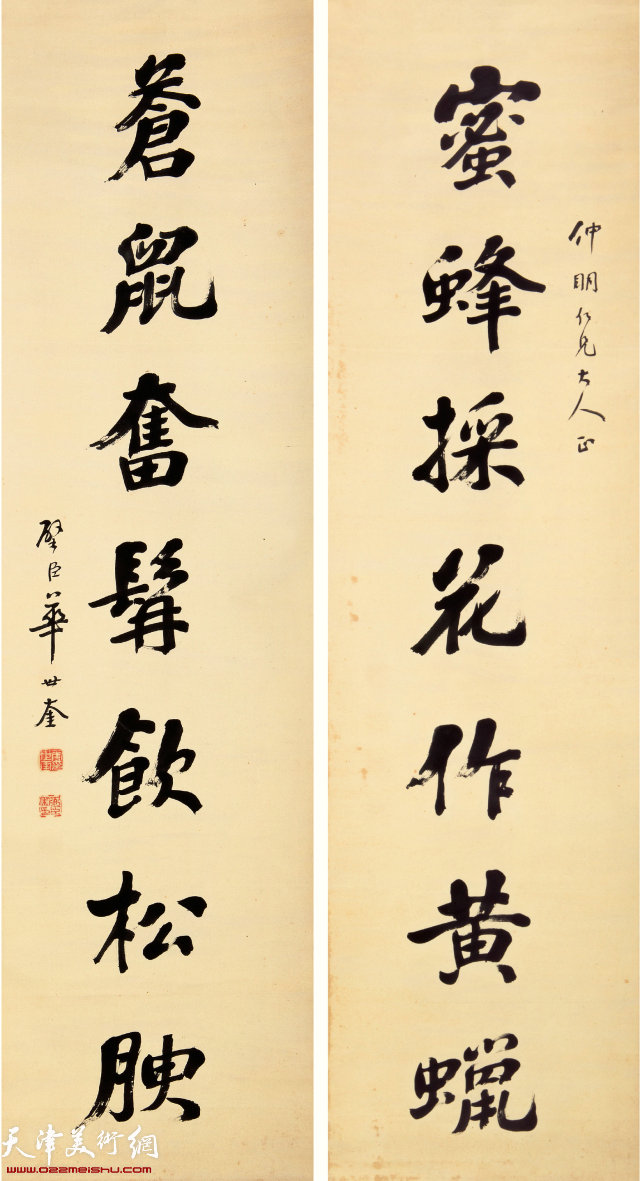 仲明仁兄大人正
蜜蜂採花作黃蠟
蒼鼠奮髯飲松腴
壁臣華世奎
天津美術網
www.022meishu.com